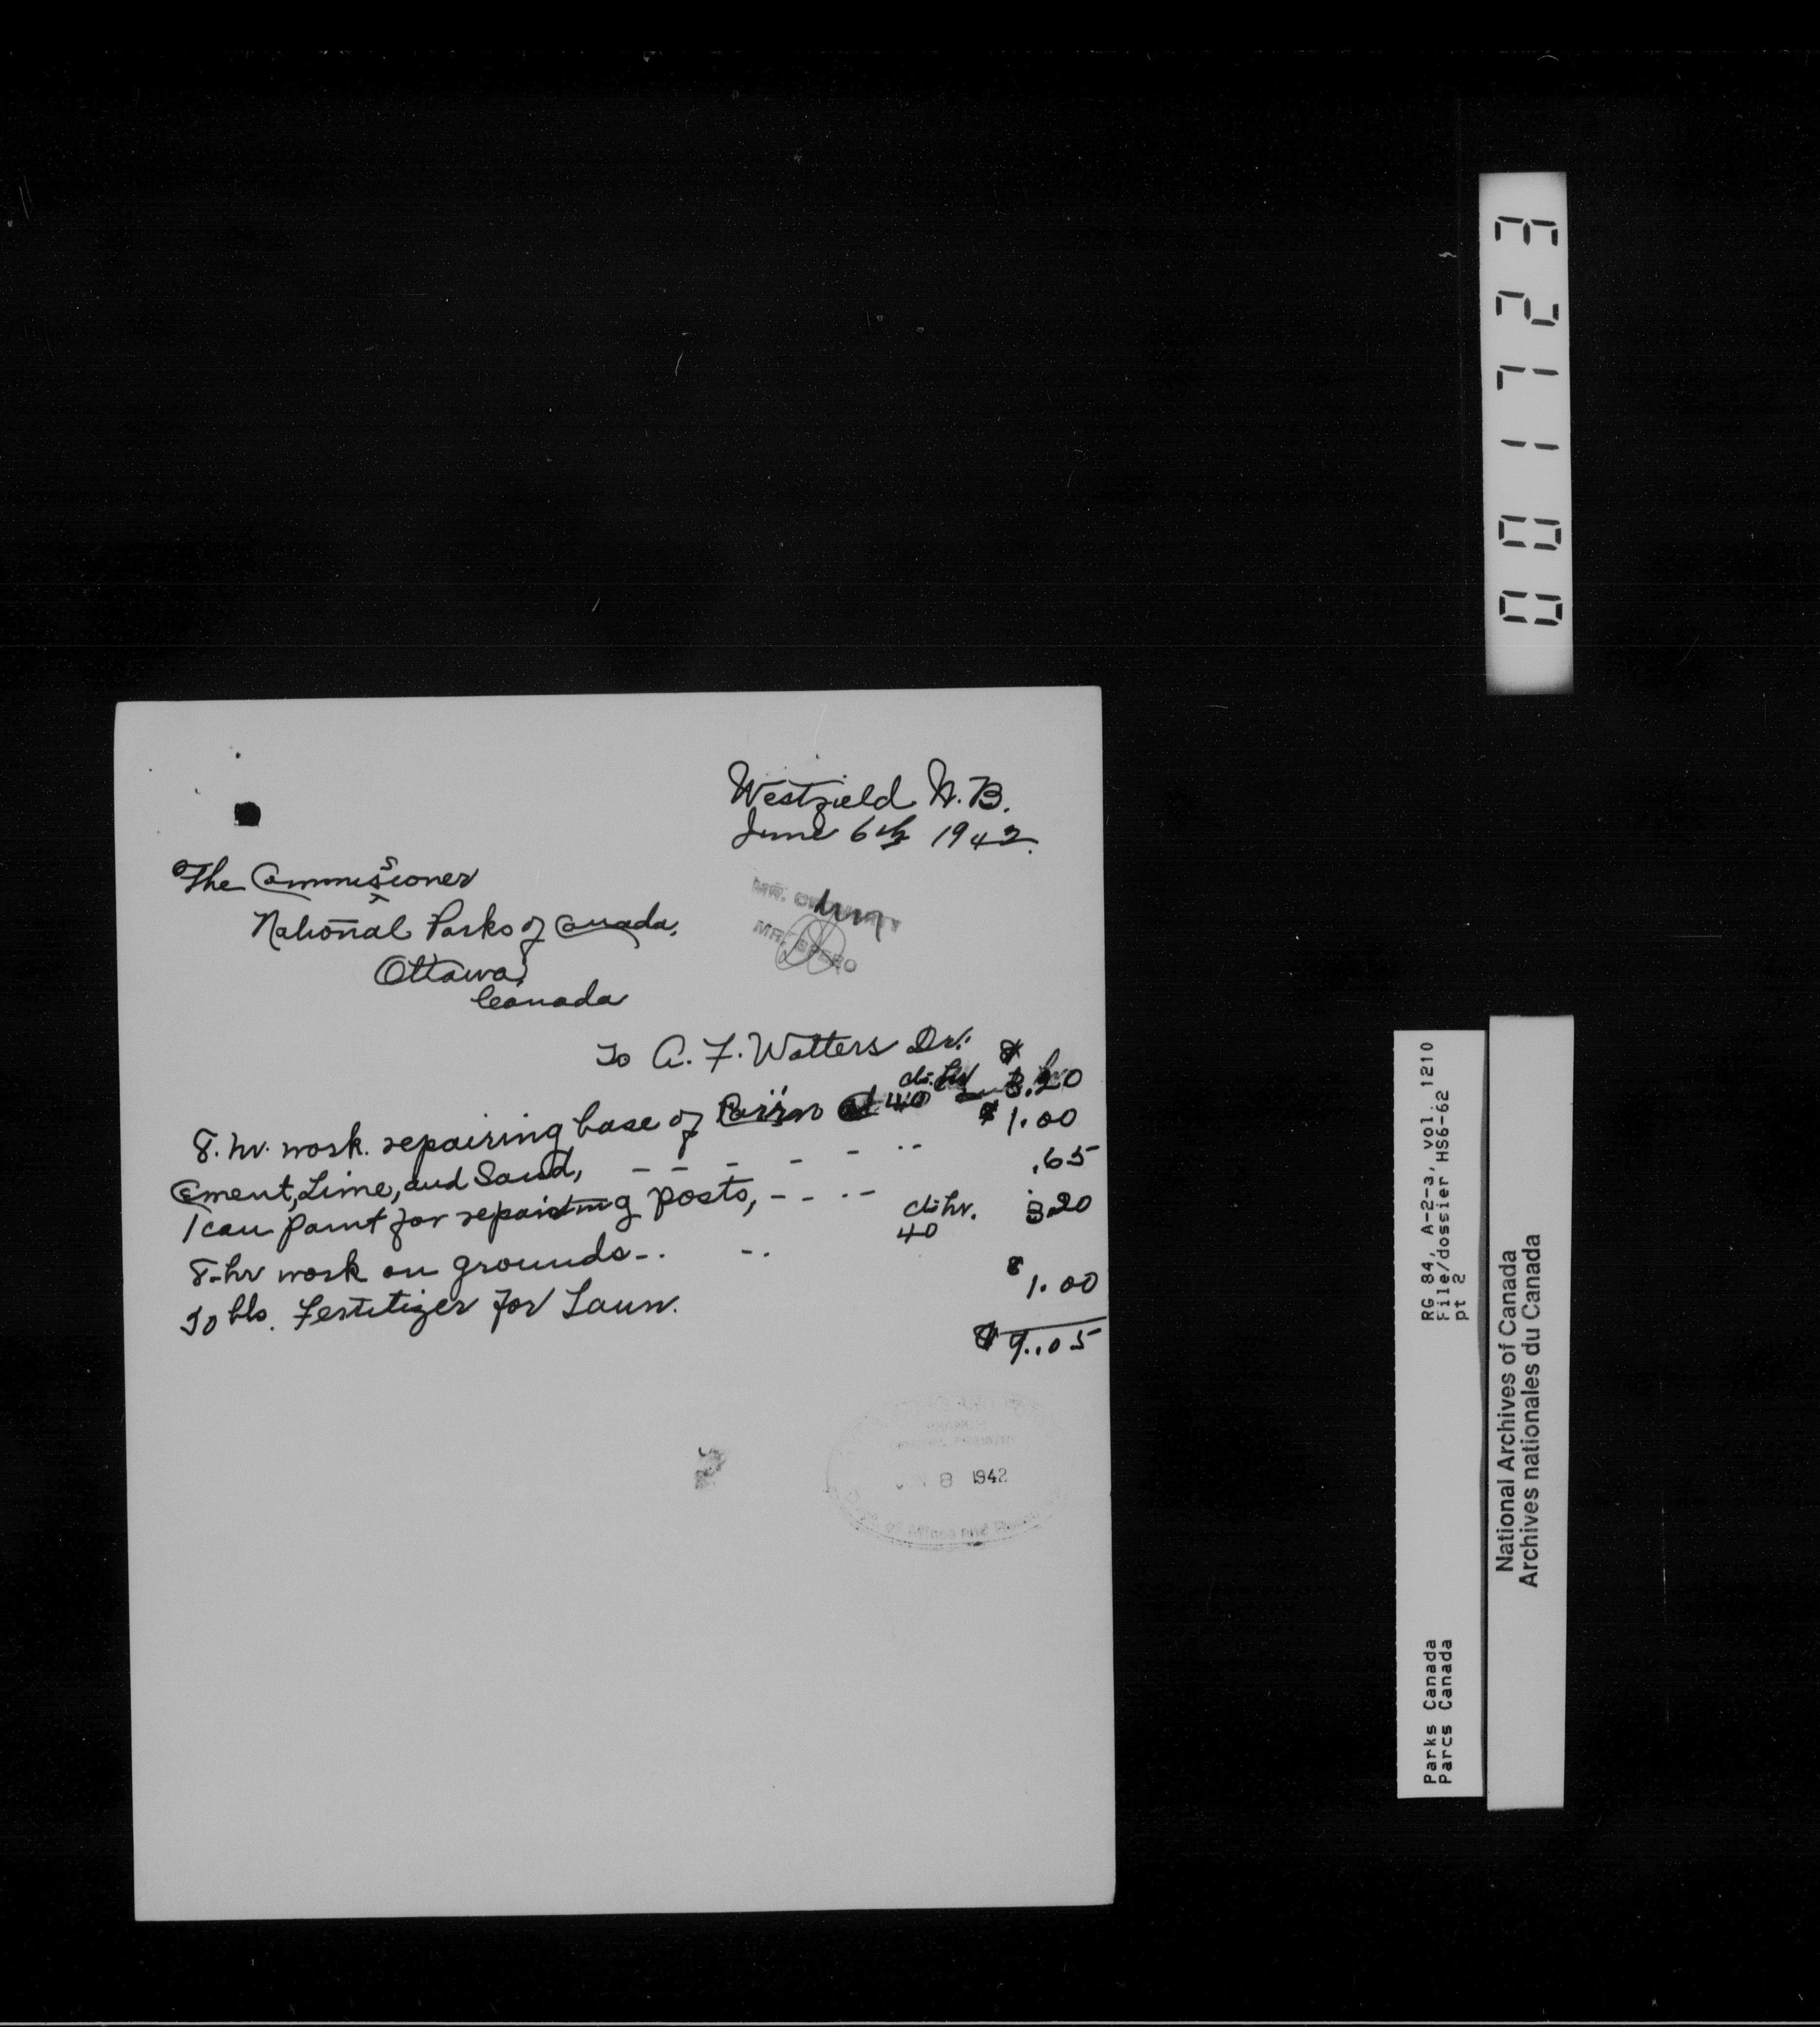 Westfield N.B.
June 6th 1942.
The Commissioner
National Parks of Canada,
Ottawa,
Canada
MR.
MR. SPERO
To A. F. Watters Dr.
$
8. hr. work. repairing base of Cairn at 40 cts. hr 3.20
Cement, Lime, and Sand, - - - - - -- $1.00
1 can paint for repainting posts, - - - - .65
8-hr work on grounds -. -. 40 cts hr. 3.20
50 lbs. Fertitizer for Laun. $1.00
$9.05
JUN 8 1942
of Mines and
001723
RG 84, A-2-a, vol. 1210
File/dossier HS6-62
pt 2
Parks Canada
Parcs Canada
National Archives of Canada
Archives nationales du Canada